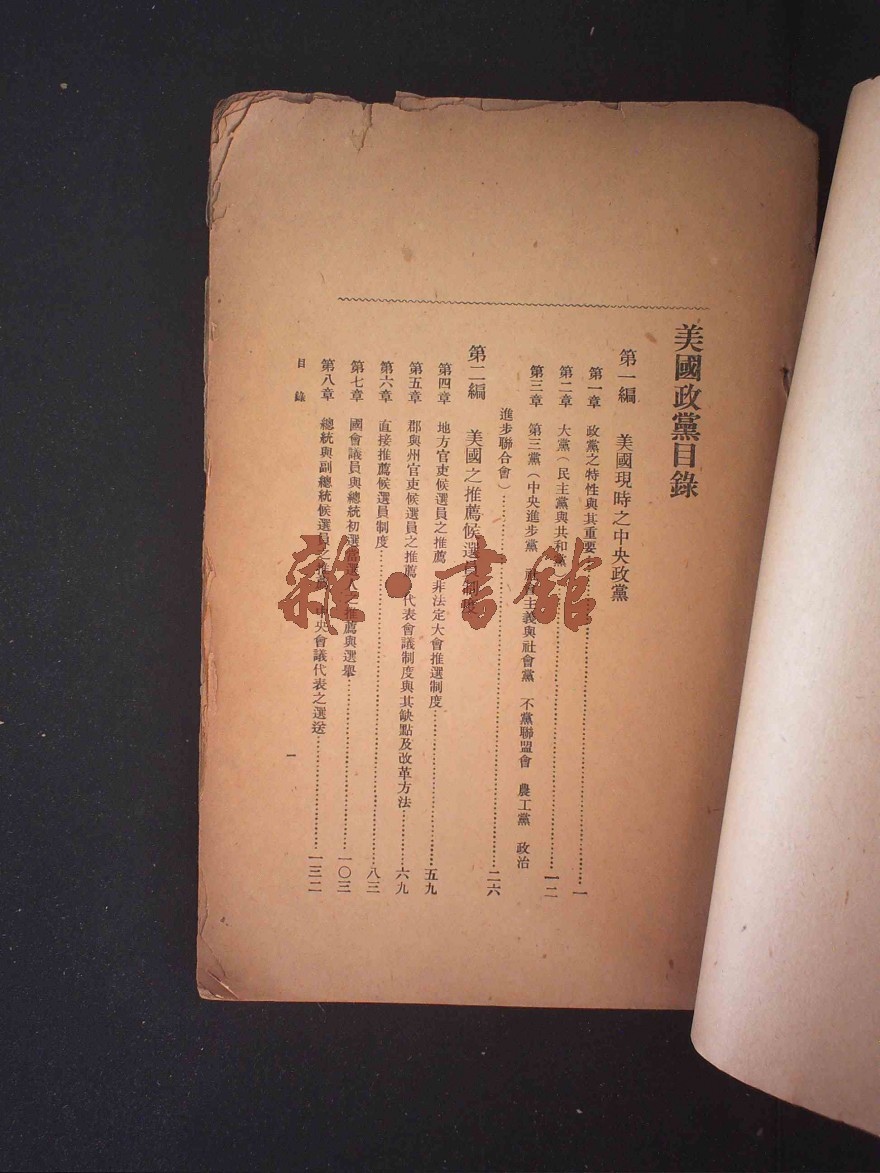 美國政黨目錄
第一編　美國現時之中央政黨
第一章　政黨之特性與其重要……一
第二章　大黨（民主黨與共和黨）……一二
第三章　第三黨（中央進步黨　社會主義與社會黨　不黨聯盟會　農工黨　政治
進步聯合會）……二六
第二編　美國之推薦候選員制度
第四章　地方官吏候選員之推薦　非法定大會推選制度……五九
第五章　郡與州官吏候選員之推薦　代表會議制度與其缺點及改革方法……六九
第六章　直接推薦候選員制度……八三
第七章　國會議員與總統初選當選人之推薦與選舉……一〇三
第八章　總統與副總統候選員之推薦　中央會議代表之選送……一三二
目錄
一
雜·書館